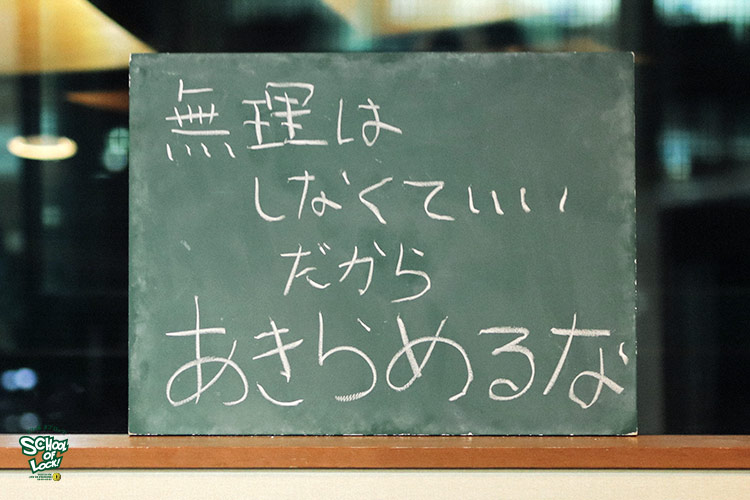 無理は
しなくていい
だから
あきらめるな
SCHOOL
OF
LOCK!